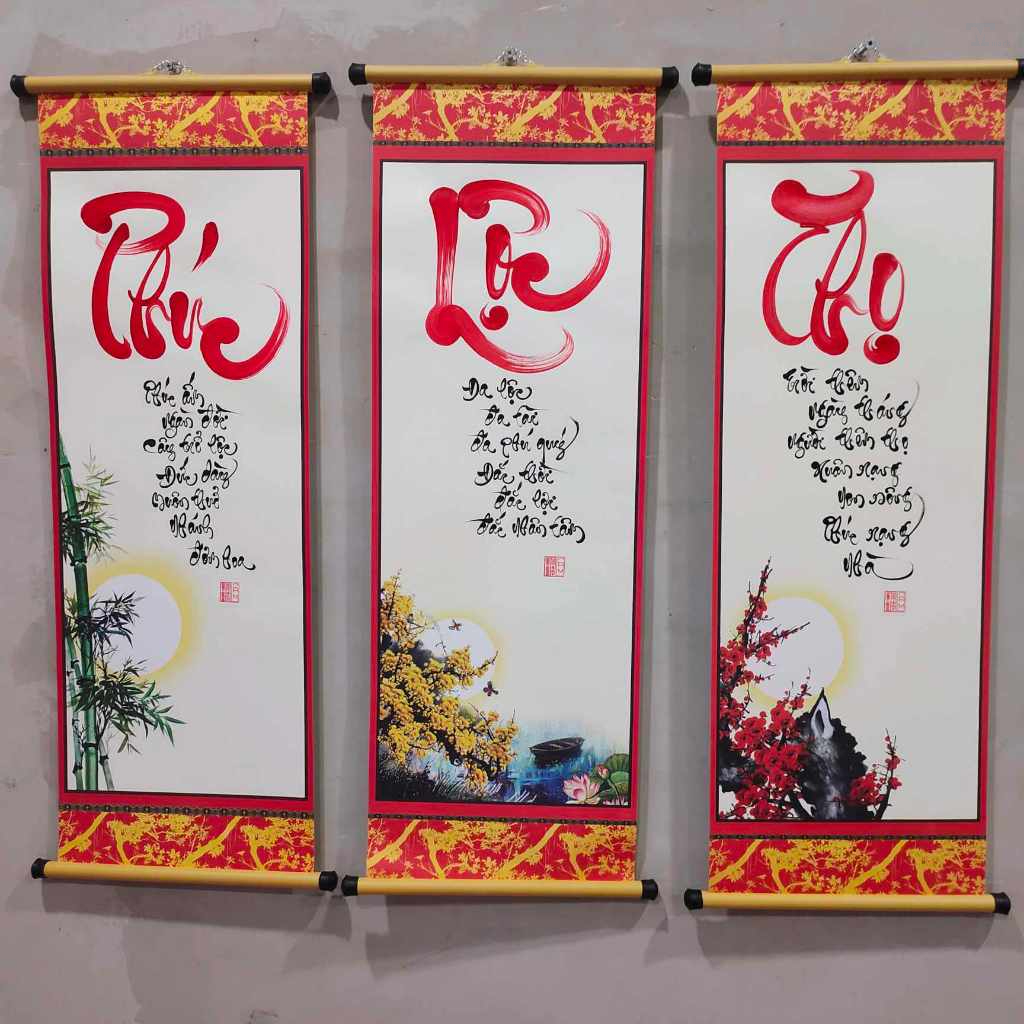 Phúc
Phúc ấm
ngàn đời
công trổ lộc
Đức dày
muôn thuở
nhánh
đơm hoa
Lộc
Đa lộc
đa tài
đa phú quý
Đắc thời
đắc lợi
đắc nhân tâm
Thọ
Trời thêm
ngày tháng
người thêm thọ
Xuân rạng
non sông
Phúc rạng
nhà